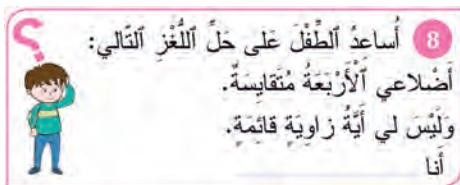 8 أُساعِدُ ٱلطِّفْلَ عَلى حَلِّ ٱللُّغْزِ ٱلتّالي:
أَضْلاعي ٱلْأَرْبَعَةُ مُتَقايِسَةٌ.
وَلَيْسَ لي أَيَّةُ زاوِيَةٍ قائِمَةٍ.
أَنا